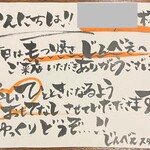 こんにちは!! 様
日は まつり焼き じんべえへ
ご来店いただきありがとうござい
しいひとときになるよう
おもてなしさせていただきます
ゆっくりどうぞ…♪
じんべえスタ